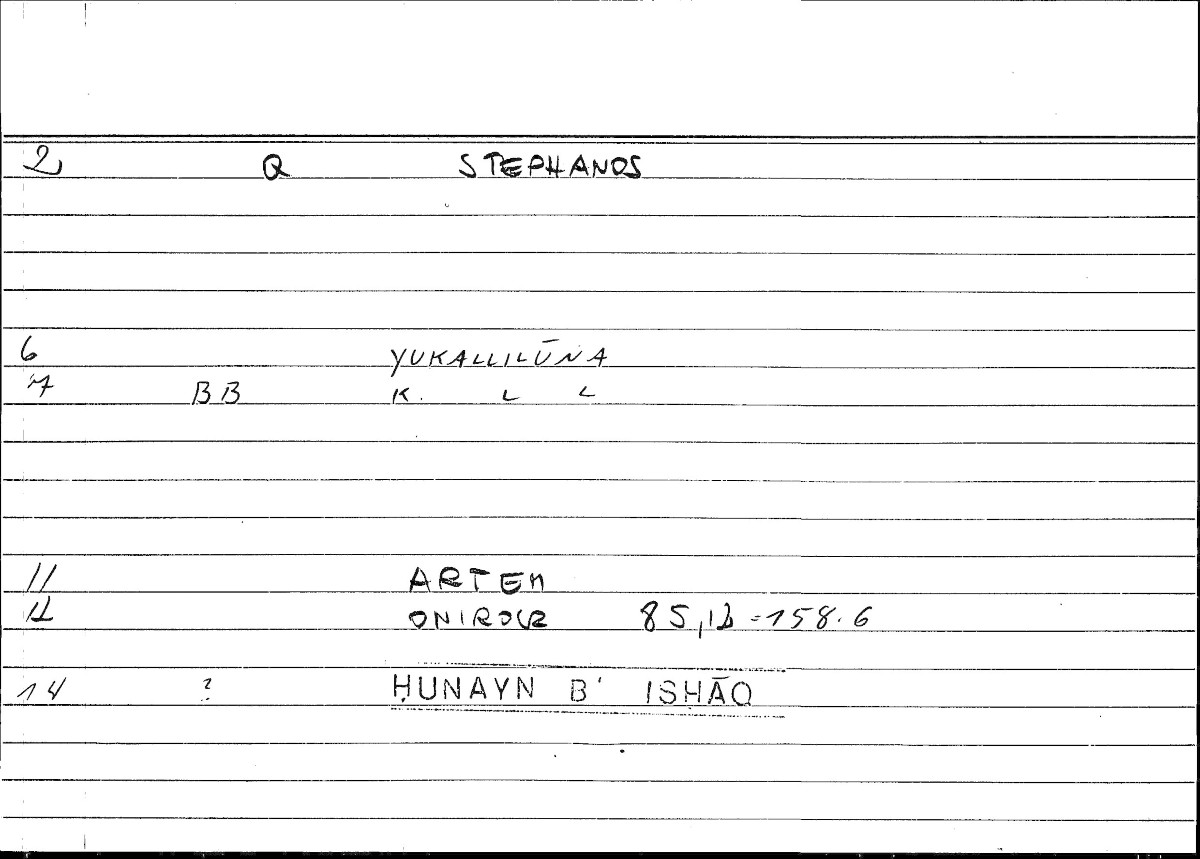 2 Q STEPHANOS
6 YUKALLILŪNA
7 BB K. L L
11 ARTEM
12 ONIROCR 85,12=158.6
14 ? ḤUNAYN B' ISḤĀQ